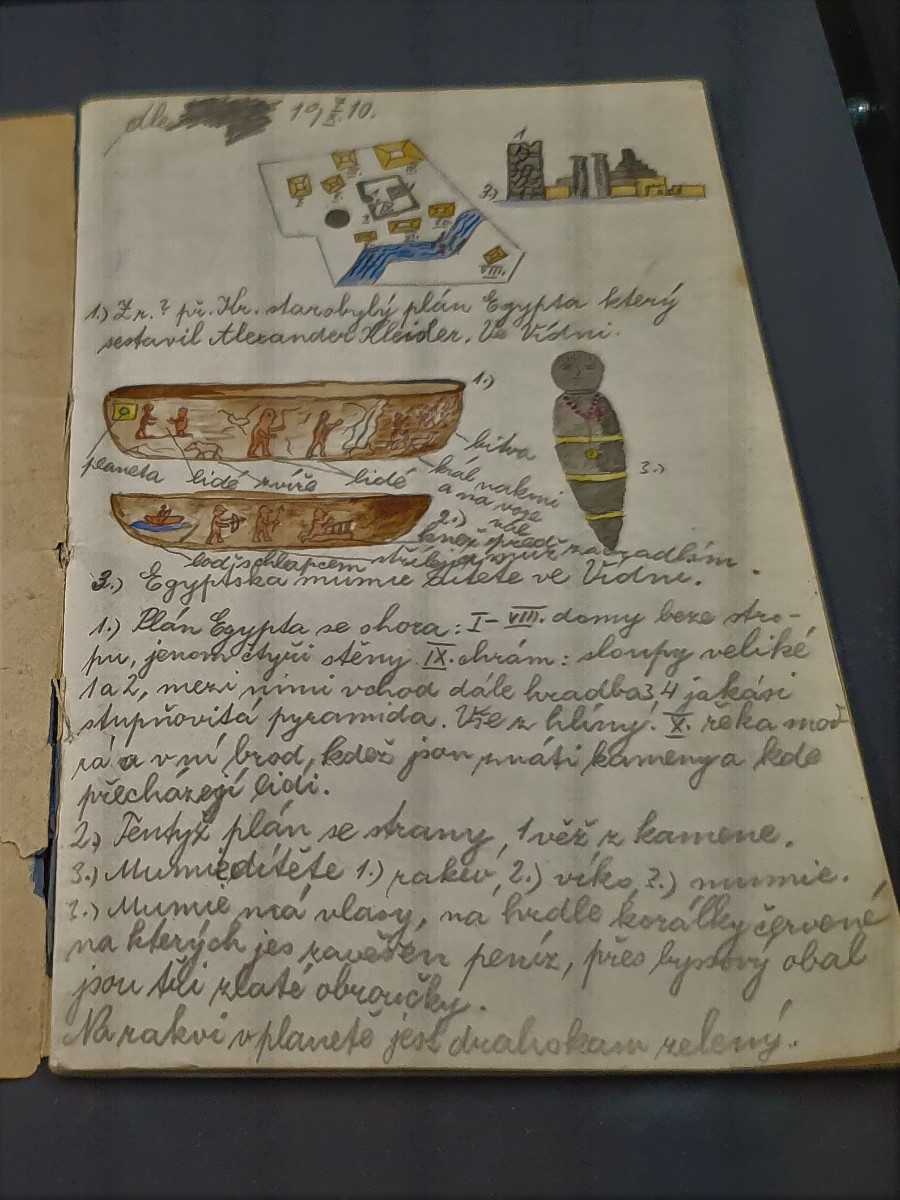 dle 19/X 10.
I. II. III. IV. VI. VII. VIII.
1
2.)
1.) Z r. ? př. Kr. starobylý plán Egypta který
sestavil Alexander Kleider. Ve Vídni.
1.)
planeta lidé zvíře lidé král bitva
nakmi
a na voze
2.)
3.)
loď s chlapcem střílející
3.) Egyptská mumie dítěte ve Vídni.
1.) Plán Egypta se shora: I-VIII. domy beze stro-
pu, jenom čtyři stěny IX. chrám: sloupy veliké
1 a 2, mezi nimi vchod dále hradba 3, 4 jakási
stupňovitá pyramida. Vše z hlíny. X. řěka mod
rá a v ní brod, kdež jsou znáti kameny a kde
přecházejí lidi.
2.) Tentýž plán se strany, 1 věž z kamene.
3.) Mumie dítěte 1.) rakev, 2.) víko, 3.) mumie.
3.) Mumie má vlasy, na hrdle korálky červené
na kterých jes zavěšen peníz, přes byssový obal
jsou tři zlaté obroučky.
Na rakvi v planetě jest drahokam zelený.